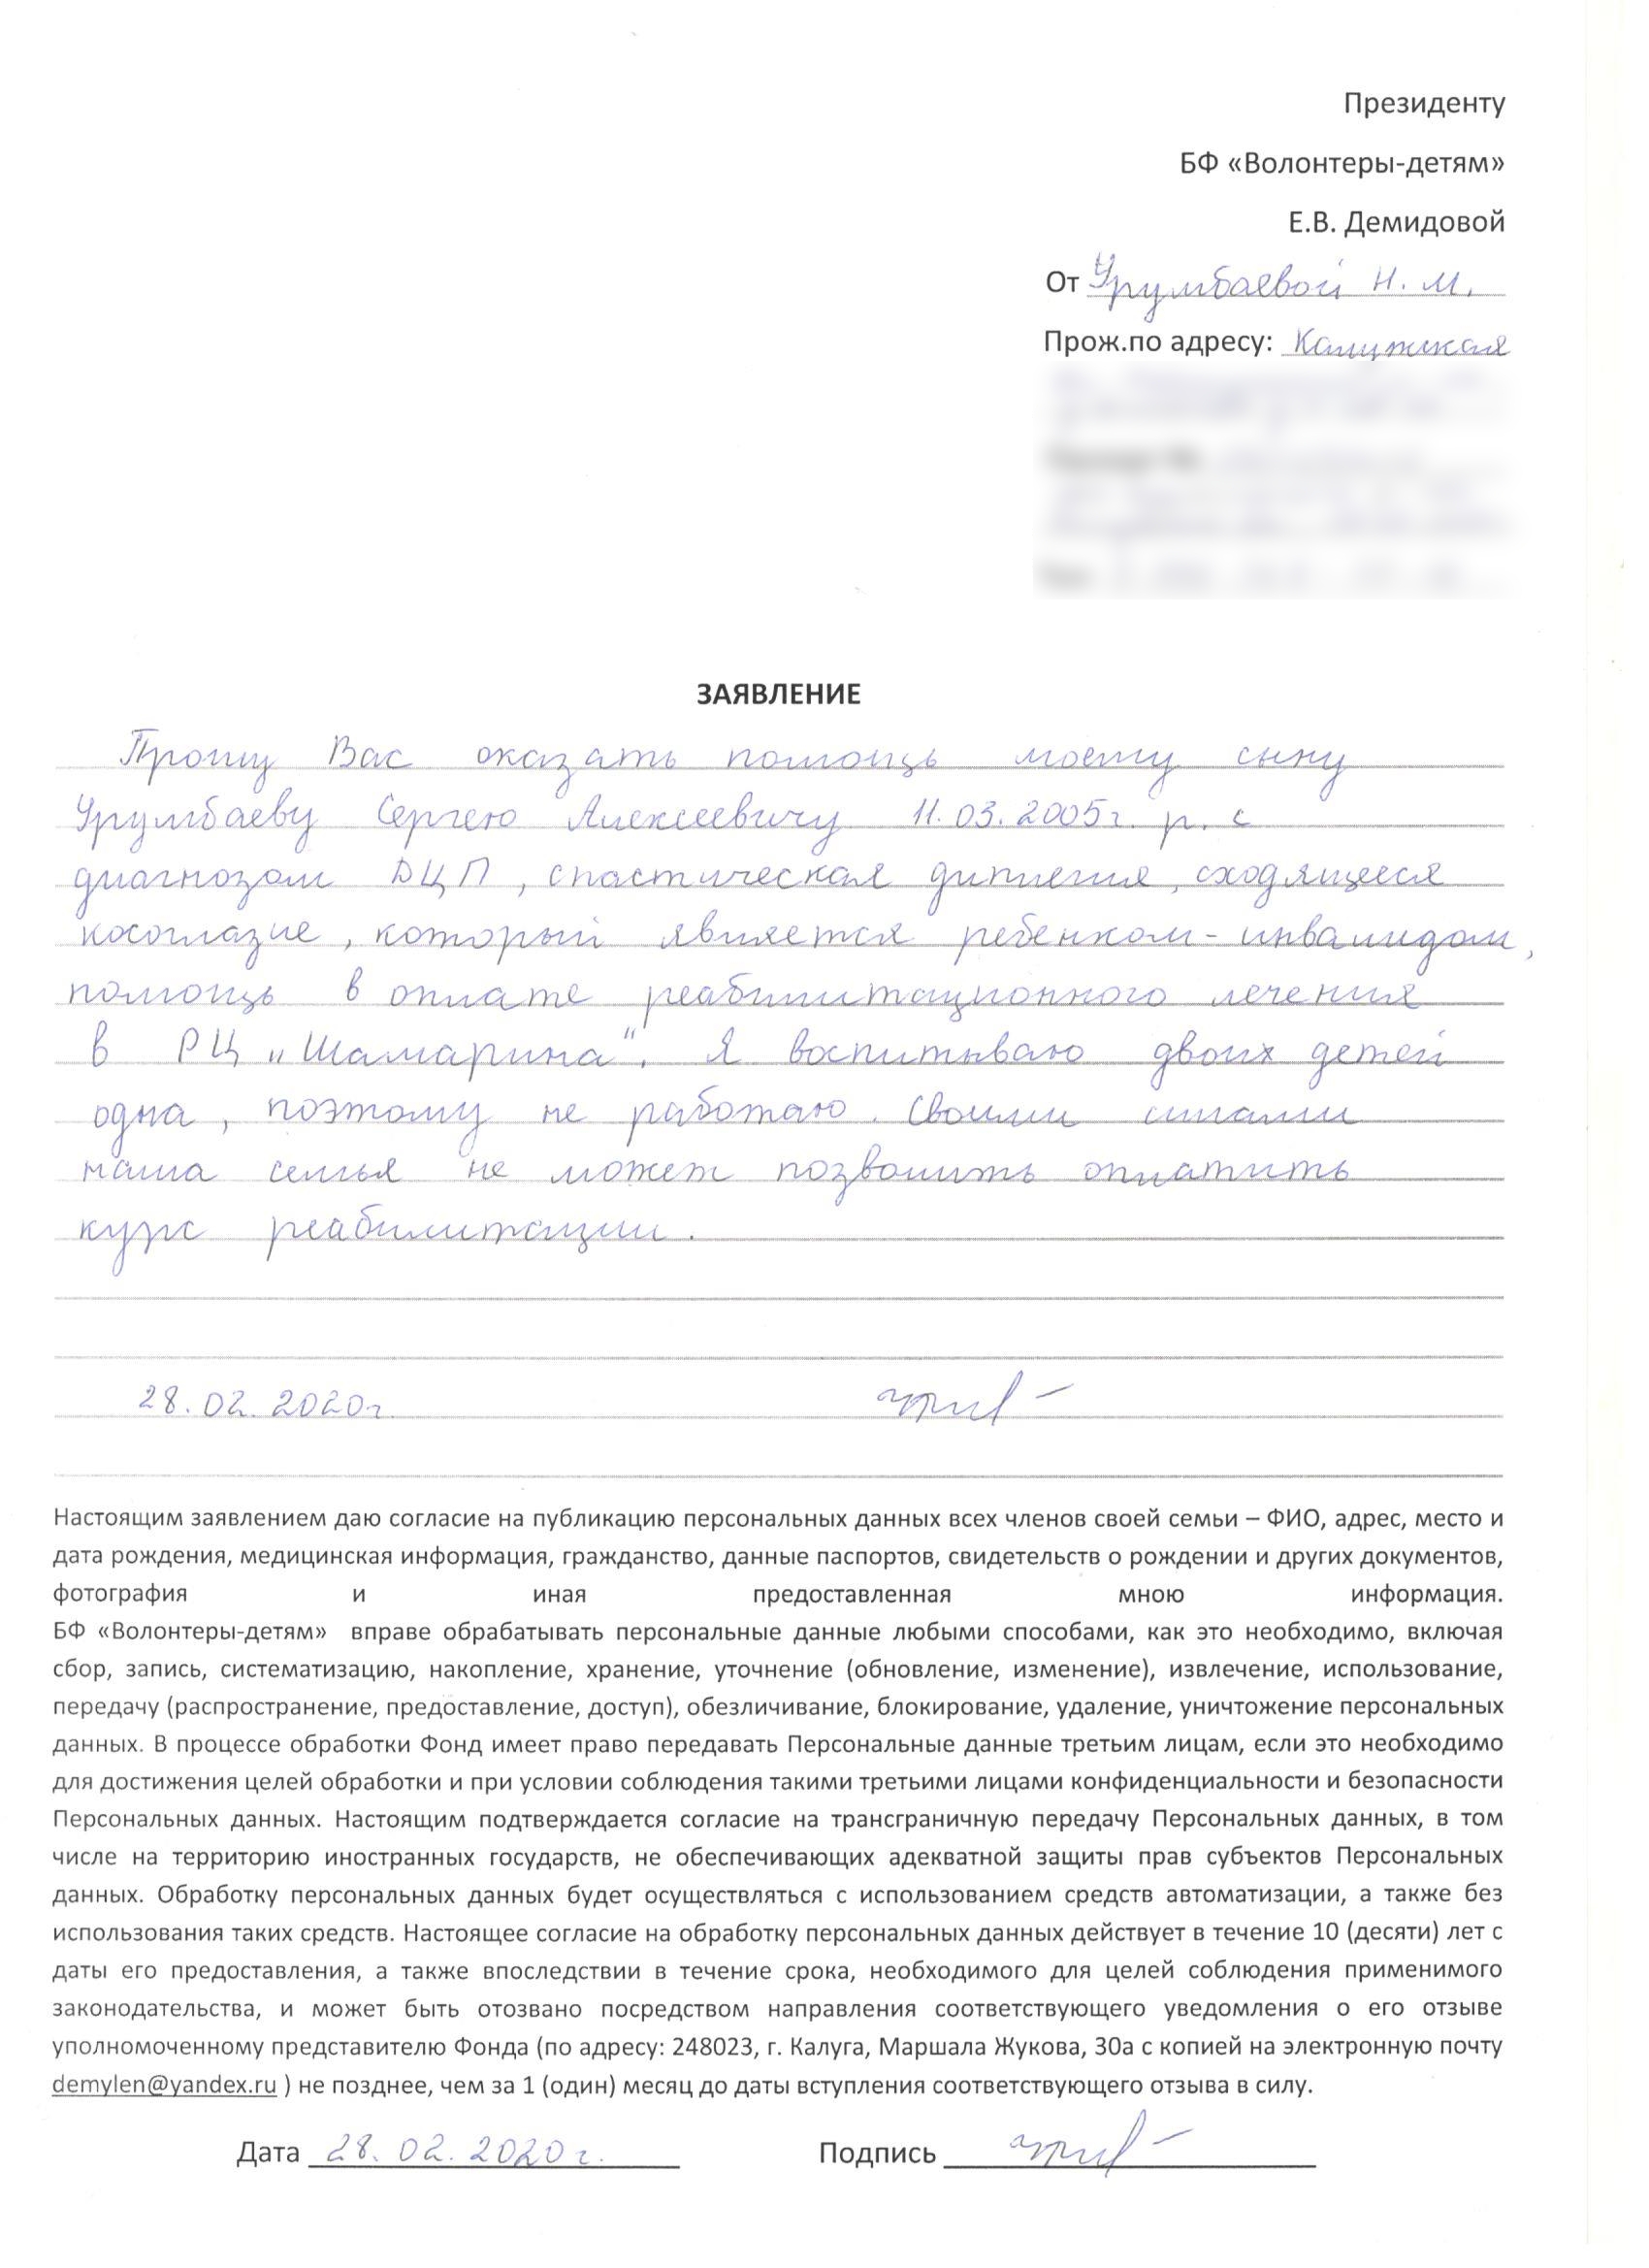 Президенту
БФ «Волонтеры-детям»
Е.В. Демидовой
От Урумбаевой Н. М.
Прож.по адресу: Калужская
ЗАЯВЛЕНИЕ
Прошу Вас оказать помощь моему сыну
Урумбаеву Сергею Алексеевичу 11.03.2005г. р. с
диагнозом ДЦП, спастическая диплегия, сходящееся
косоглазие, который является ребенком-инвалидом,
помощь в оплате реабилитационного лечения
в РЦ „Шамарина". Я воспитываю двоих детей
одна, поэтому не работаю. Своими силами
наша семья не может позволить оплатить
курс реабилитации.
28.02.2020г.
Настоящим заявлением даю согласие на публикацию персональных данных всех членов своей семьи – ФИО, адрес, место и
дата рождения, медицинская информация, гражданство, данные паспортов, свидетельств о рождении и других документов,
фотография и иная предоставленная мною информация.
БФ «Волонтеры-детям» вправе обрабатывать персональные данные любыми способами, как это необходимо, включая
сбор, запись, систематизацию, накопление, хранение, уточнение (обновление, изменение), извлечение, использование,
передачу (распространение, предоставление, доступ), обезличивание, блокирование, удаление, уничтожение персональных
данных. В процессе обработки Фонд имеет право передавать Персональные данные третьим лицам, если это необходимо
для достижения целей обработки и при условии соблюдения такими третьими лицами конфиденциальности и безопасности
Персональных данных. Настоящим подтверждается согласие на трансграничную передачу Персональных данных, в том
числе на территорию иностранных государств, не обеспечивающих адекватной защиты прав субъектов Персональных
данных. Обработку персональных данных будет осуществляться с использованием средств автоматизации, а также без
использования таких средств. Настоящее согласие на обработку персональных данных действует в течение 10 (десяти) лет с
даты его предоставления, а также впоследствии в течение срока, необходимого для целей соблюдения применимого
законодательства, и может быть отозвано посредством направления соответствующего уведомления о его отзыве
уполномоченному представителю Фонда (по адресу: 248023, г. Калуга, Маршала Жукова, 30а с копией на электронную почту
demylen@yandex.ru ) не позднее, чем за 1 (один) месяц до даты вступления соответствующего отзыва в силу.
Дата 28.02.2020 г. Подпись